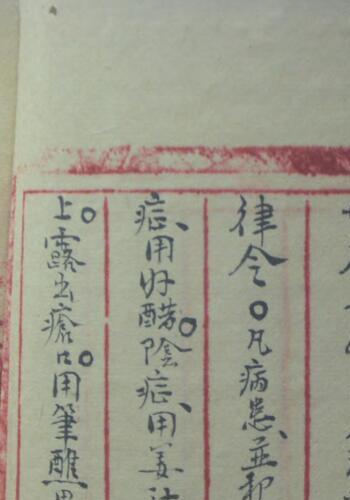 律令。凡病患、並
症、用好醋。陰症、用姜
上。露出瘡口。用筆醮